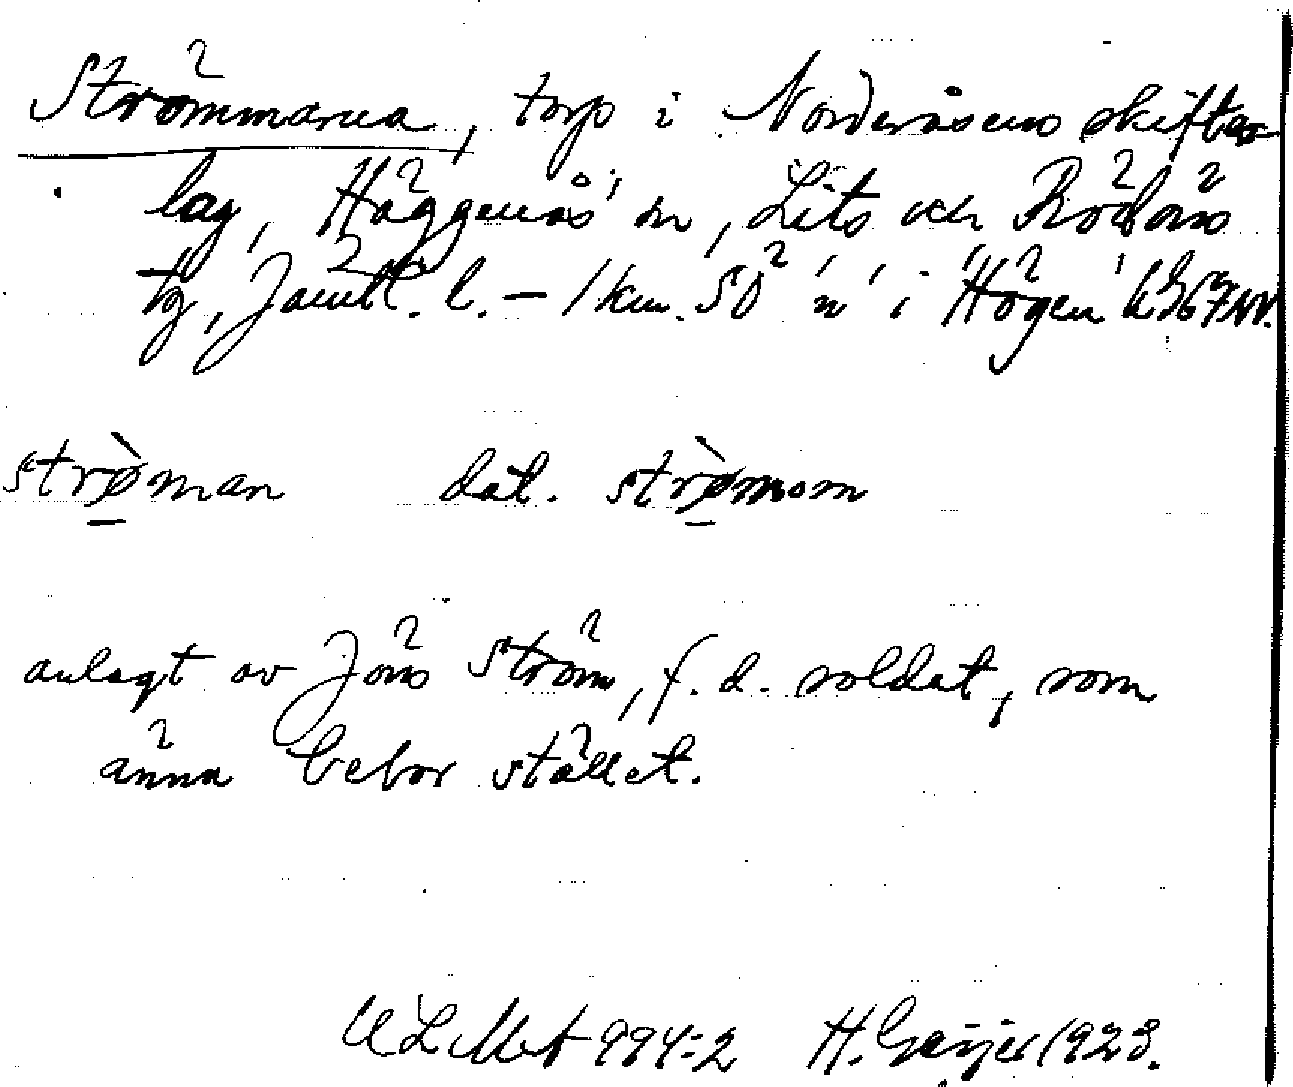 Strömmarna, torp i Norderåsens skifter
lag, Häggenås' sn, Lits och Rödöns
tg, Jämtl. l. – 1 km. SO n' i Högen'
strø̀man dat. strø̀mom
anlagt av Jöns Ström, f. d. soldat, som
änna bebor stället.
ULMA 994:2 H. Geijer 1923.